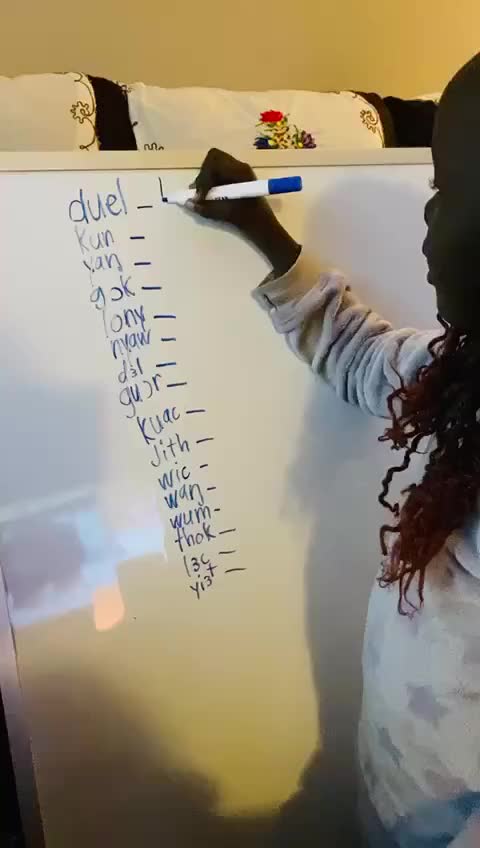 duel -
kun -
yaŋ -
gɔk -
lony -
nyaw -
dɜl -
guɔr -
kuac -
Jith -
wic -
waŋ -
wum -
thok -
lɜc -
yiɜt -